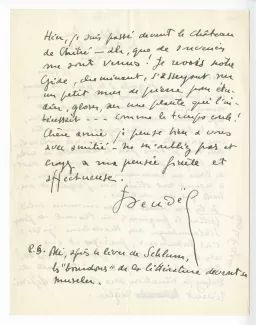 Hier, je suis passé devant le château
de Cuverville — Ah, que de souvenirs
me sont venus ! Je revois notre
Gide, cheminant, s'asseyant sur
un petit mur de pierre pour
gloser, sur une plante qui l'in-
téressait --- comme le temps
Chère amie je pense bien à vous
avec amitié — ne m'oubliez pas et
croyez à ma pensée fidèle et
affectueuse.
P.S. après le livre de Schlum,
les "bourdons" de la littérature devraient se
museler.